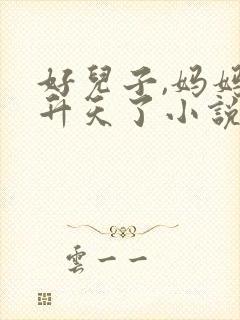 好兒子,妈妈
升天了小說
雲一一